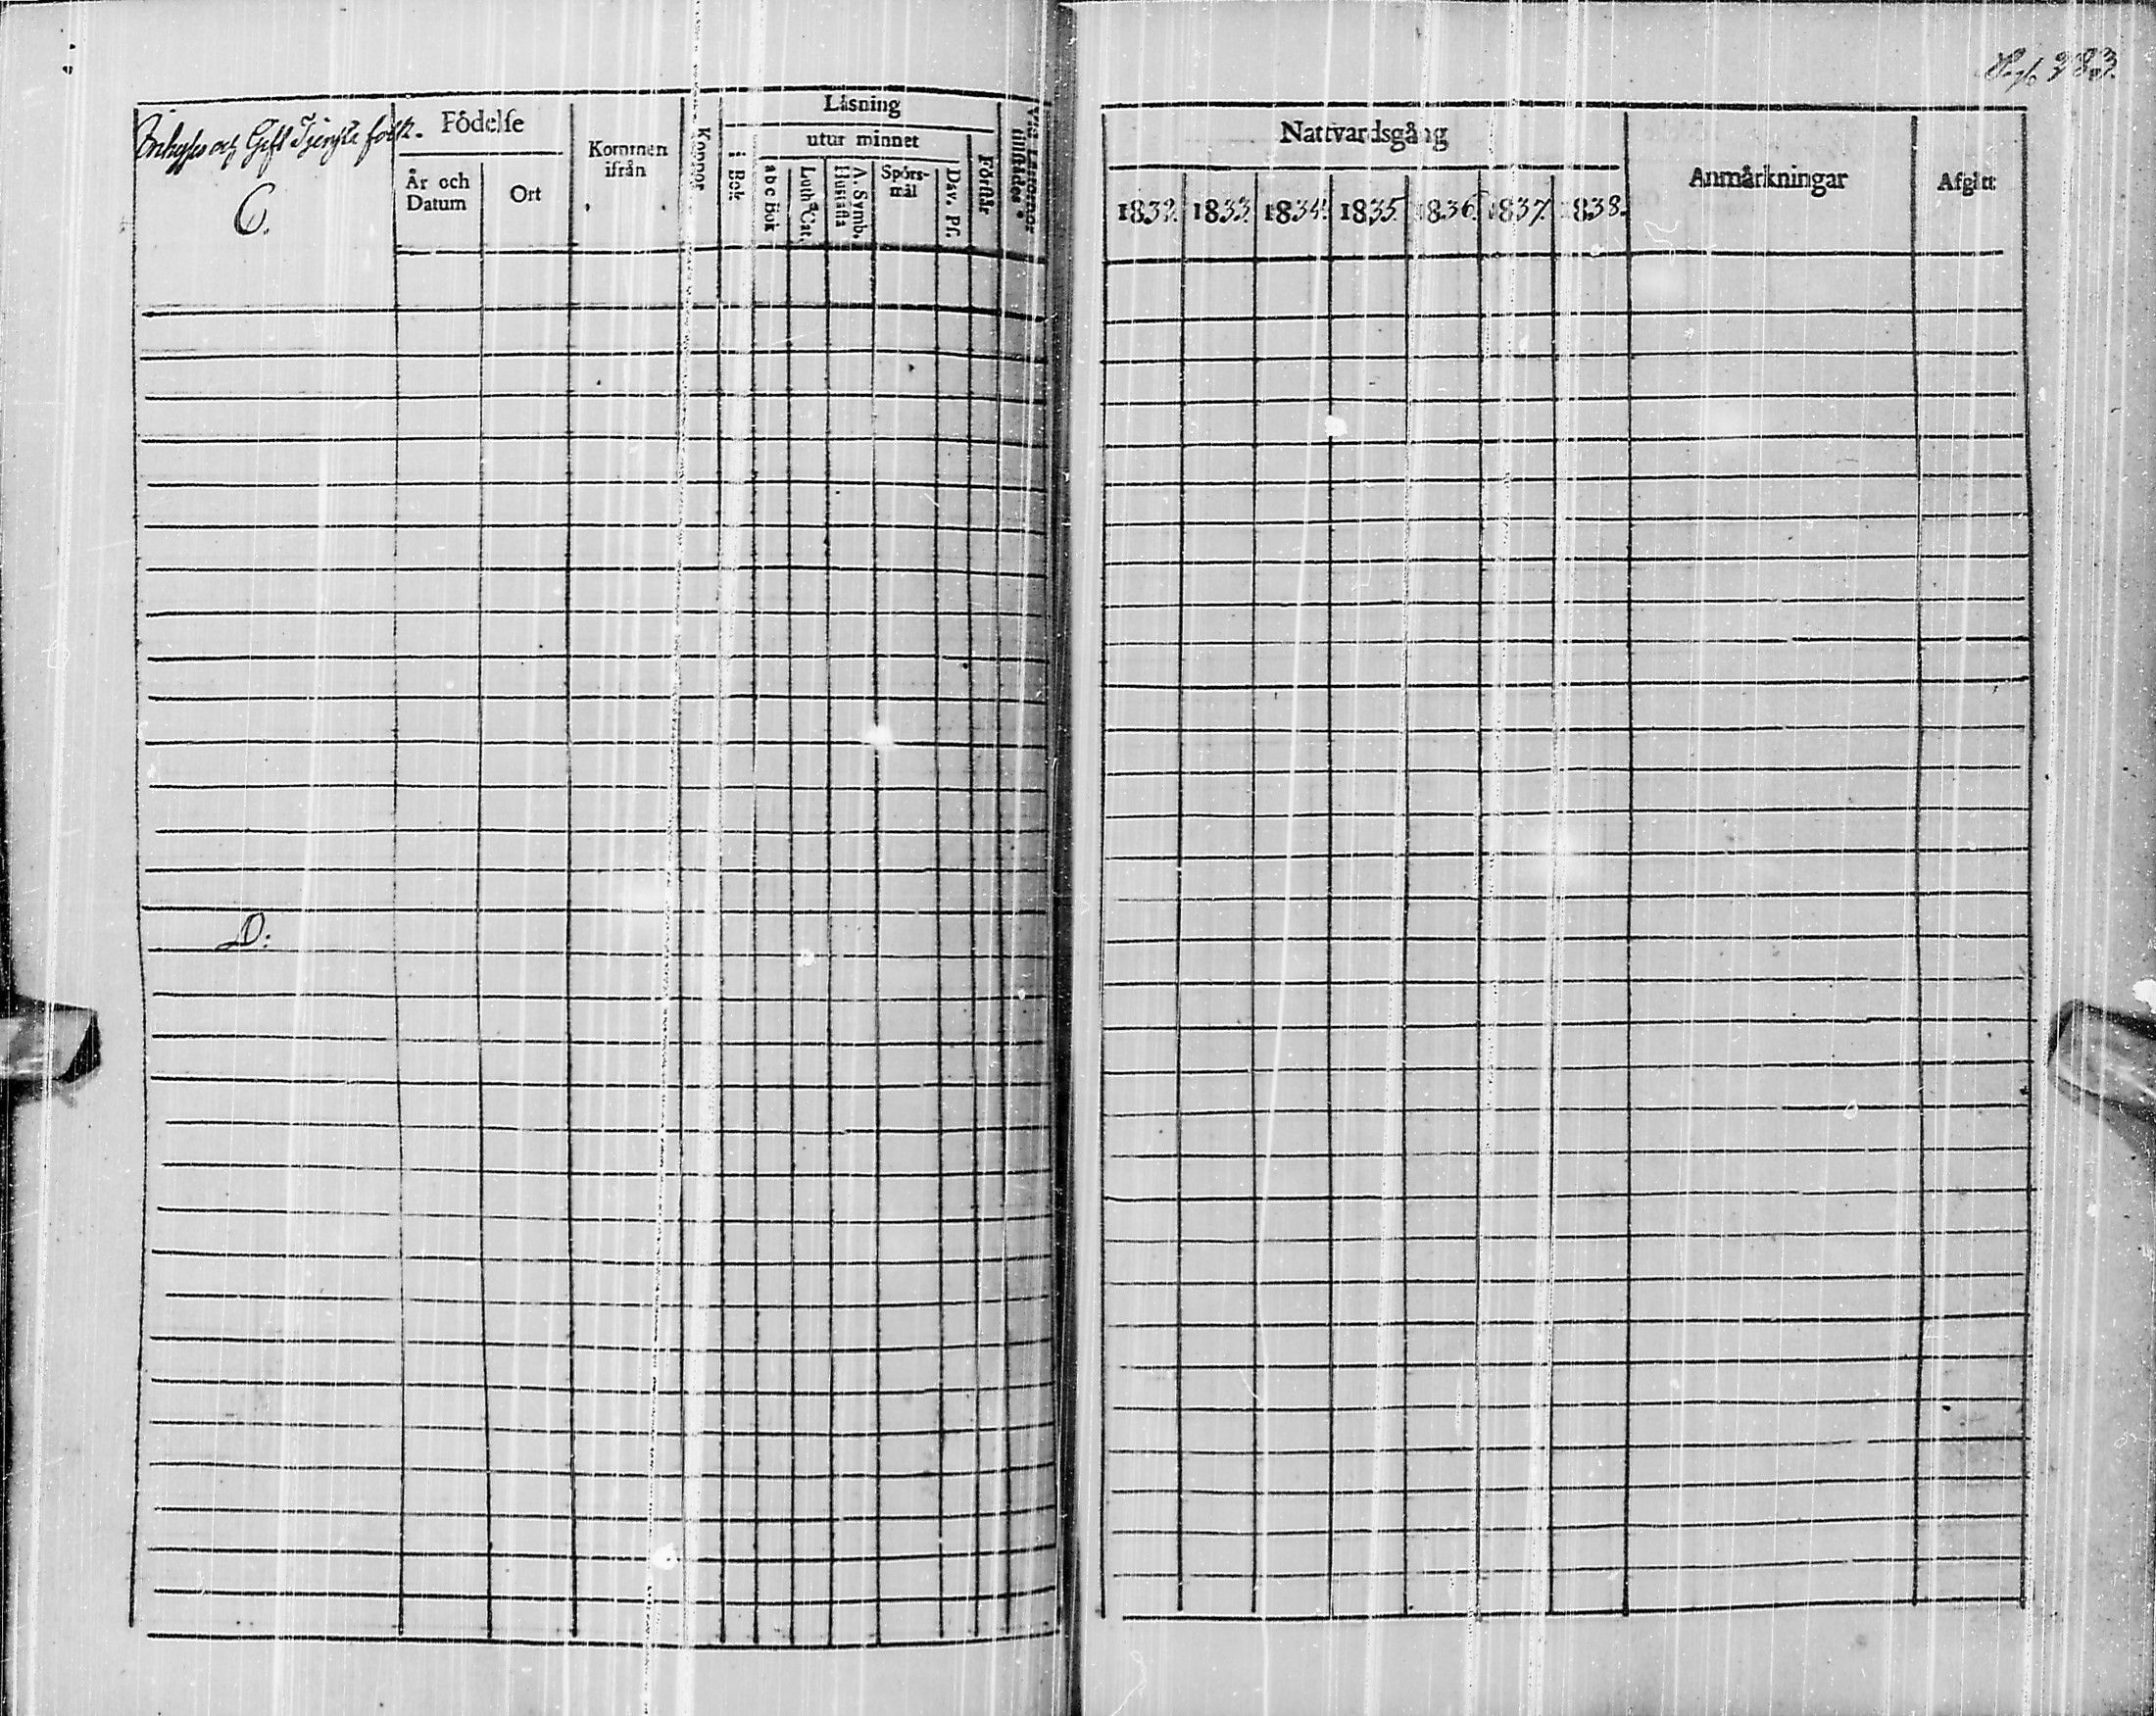 Pag. 383.
Inhyses och Gift Tjenste folk.
C.
Födelse
År och
Datum
Ort
Kommen
ifrån
Koppor
Läsning
i Bok
utur minnet
a b c Bok
Luth. Cat.
A. Symb.
Hustafla
Spörs-
mål
Dav. Ps.
Förstår
Vid Läsningar
tillstädes
Nattvardsgång
1832. 1833. 1834. 1835. 1836. 1837. 1838.
Anmärkningar
Afgått
D: